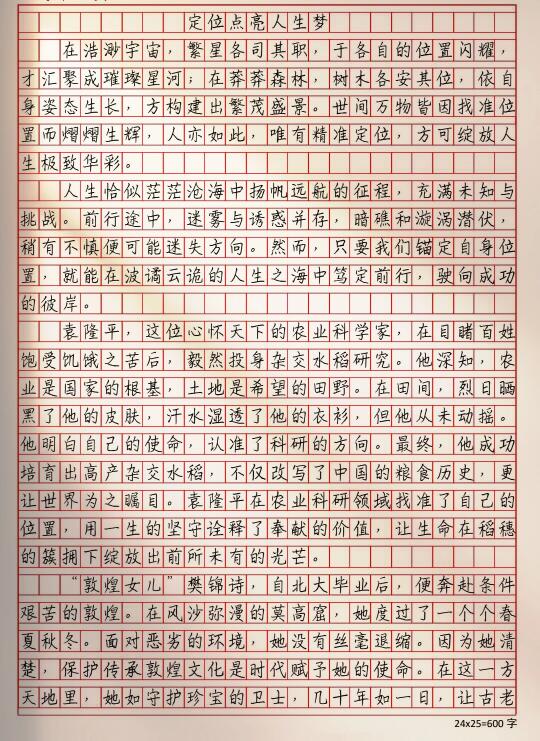 定位点亮人生梦
在浩渺宇宙，繁星各司其职，于各自的位置闪耀，
才汇聚成璀璨星河；在莽莽森林，树木各安其位，依自
身姿态生长，方构建出繁茂盛景。世间万物皆因找准位
置而熠熠生辉，人亦如此，唯有精准定位，方可绽放人
生极致华彩。
人生恰似茫茫沧海中扬帆远航的征程，充满未知与
挑战。前行途中，迷雾与诱惑并存，暗礁和漩涡潜伏，
稍有不慎便可能迷失方向。然而，只要我们锚定自身位
置，就能在波谲云诡的人生之海中笃定前行，驶向成功
的彼岸。
袁隆平，这位心怀天下的农业科学家，在目睹百姓
饱受饥饿之苦后，毅然投身杂交水稻研究。他深知，农
业是国家的根基，土地是希望的田野。在田间，烈日晒
黑了他的皮肤，汗水湿透了他的衣衫，但他从未动摇。
他明白自己的使命，认准了科研的方向。最终，他成功
培育出高产杂交水稻，不仅改写了中国的粮食历史，更
让世界为之瞩目。袁隆平在农业科研领域找准了自己的
位置，用一生的坚守诠释了奉献的价值，让生命在稻穗
的簇拥下绽放出前所未有的光芒。
“敦煌女儿”樊锦诗，自北大毕业后，便奔赴条件
艰苦的敦煌。在风沙弥漫的莫高窟，她度过了一个个春
夏秋冬。面对恶劣的环境，她没有丝毫退缩。因为她清
楚，保护传承敦煌文化是时代赋予她的使命。在这一方
天地里，她如守护珍宝的卫士，几十年如一日，让古老
24x25=600 字